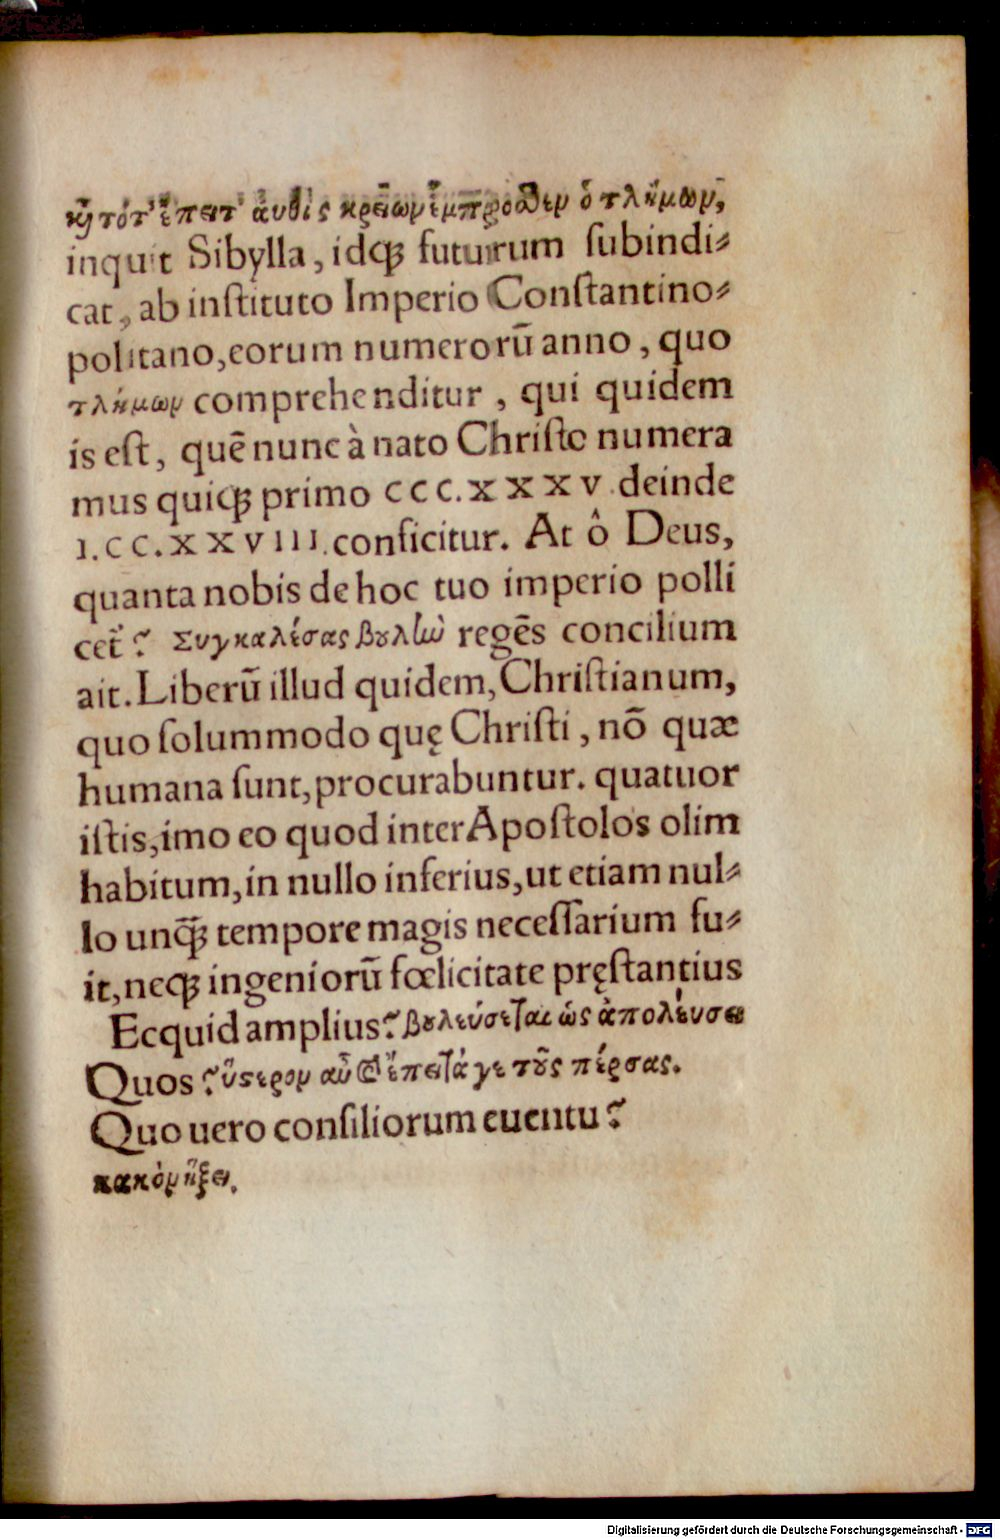 καὶ τότ' ἔπειτ' ἀυθὶς κρείων ἔμπροσθεν ὁ τλήμων,
inquit Sibylla, idqꝫ futurum ſubindi⸗
cat, ab inſtituto Imperio Conſtantino⸗
politano, eorum numerorū anno, quo
τλήμων comprehenditur, qui quidem
is eſt, quē nunc à nato Chriſto numera
mus quiqꝫ primo CCC.XXXV. deinde
I.CC.XXVIII. conficitur. At ô Deus,
quanta nobis de hoc tuo imperio polli
cet̃? Συγκαλέσας βουλὴν regēs concilium
ait. Liberū illud quidem, Chriſtianum,
quo ſolummodo quę Chriſti, nō quæ
humana ſunt, procurabuntur. quatuor
iſtis, imo eo quod inter Apoſtolos olim
habitum, in nullo inferius, ut etiam nul⸗
lo unq̃ꝫ tempore magis neceſſarium fu⸗
it, neqꝫ ingeniorū fœlicitate pręſtantius
Ecquid amplius? βουλεύσεται ὡς ἀπολέυσει
Quos? ὕστερον αὖ ἔπειτά γε τοὺς πέρσας.
Quo uero conſiliorum euentu?
κακὸν ἥξει.
Digitalisierung gefördert durch die Deutsche Forschungsgemeinschaft - DFG